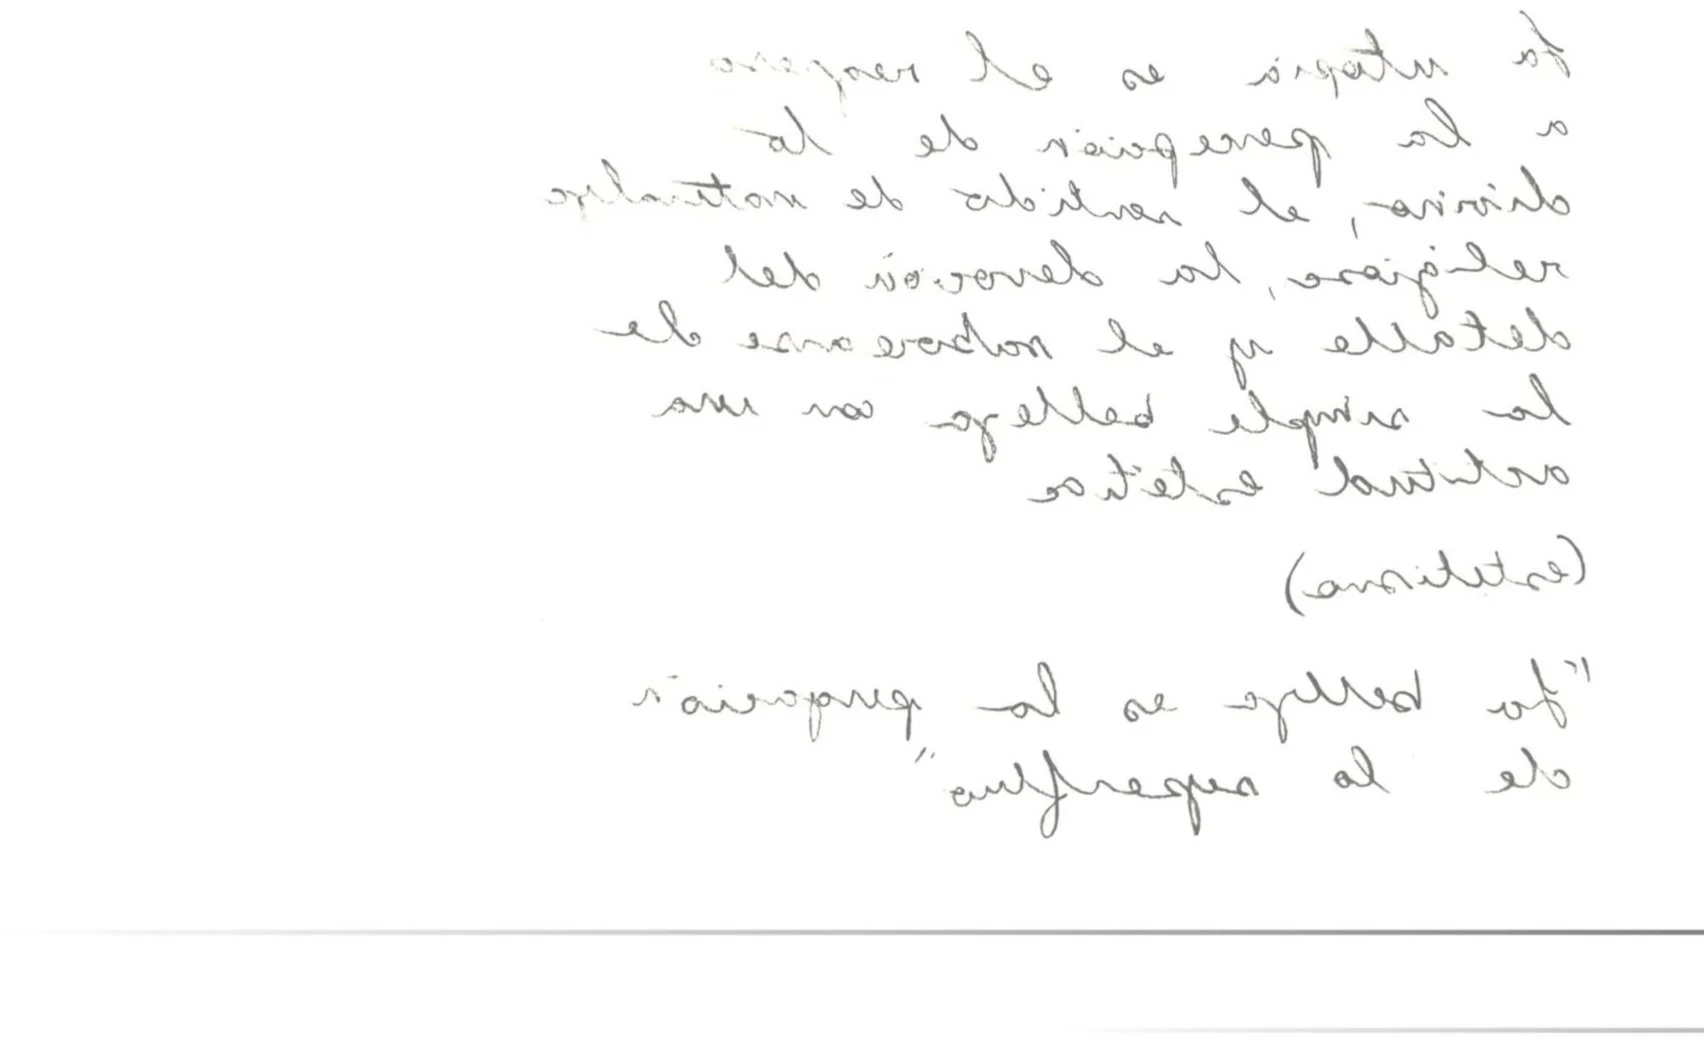 La utopía es el regreso
a la percepción de lo
divino, el sentido de naturaleza
religiosa, la devoción del
detalle y el saborearse de
la simple belleza con una
actitud estética
(esteticismo)
"La belleza es la purgación
de lo superfluo"